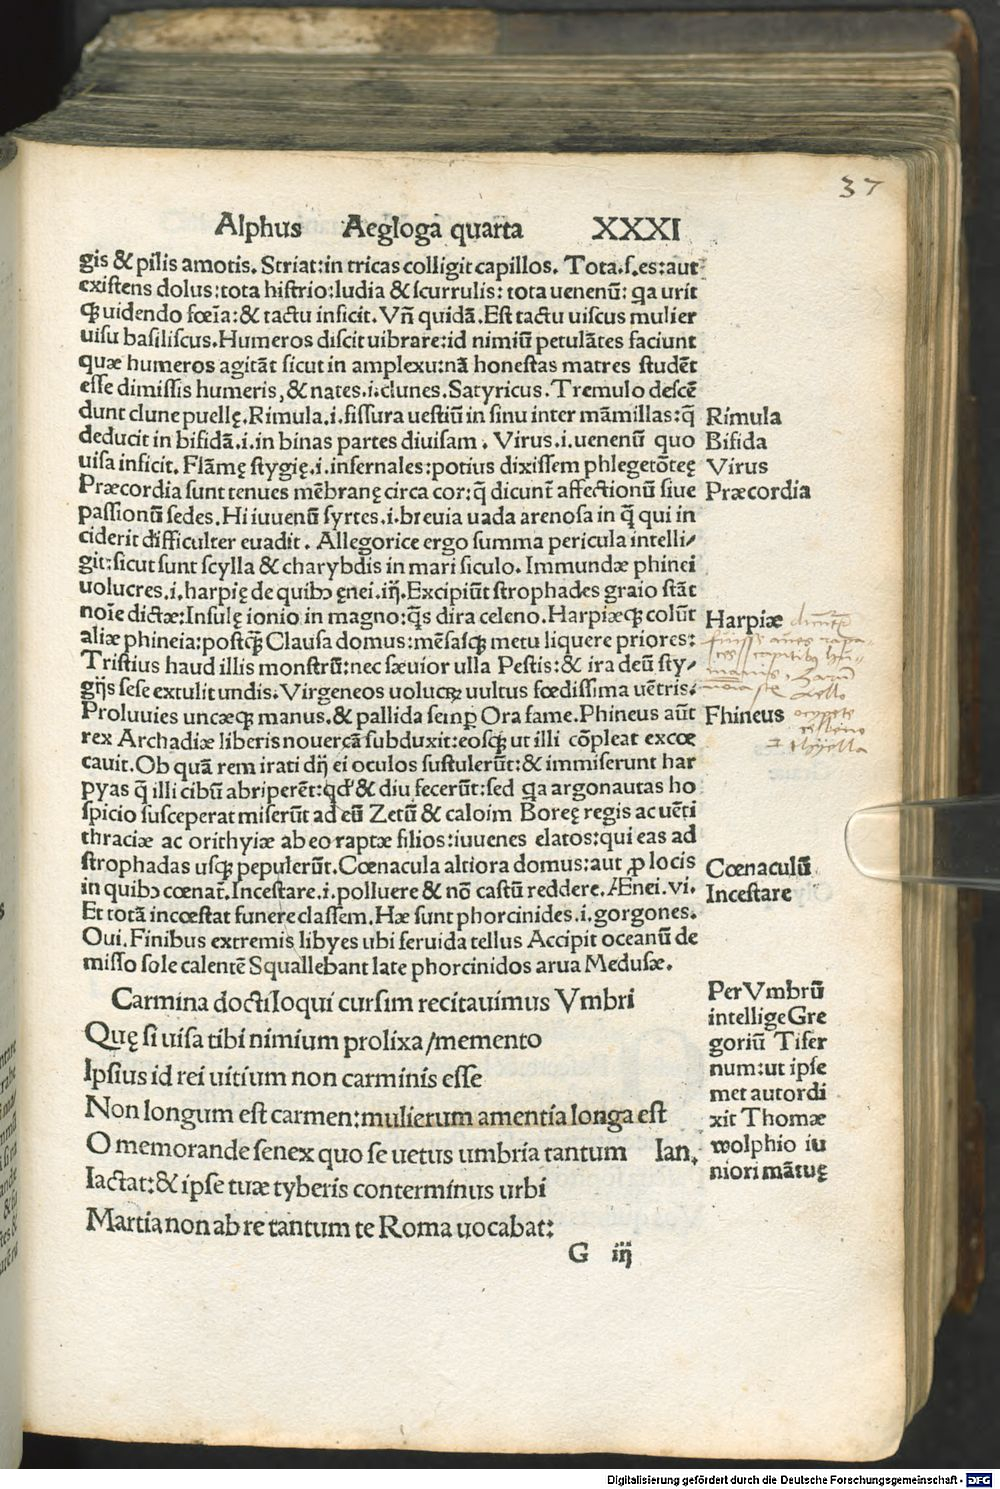 37
Alphus Aegloga quarta XXXI
gis & pilis amotis. Striat:in tricas colligit capillos. Tota.ſ.es:aut
existens dolus:tota histrio:ludia & scurrulis: tota uenenū: qa urit
uidendo fœīa:& tactu inficit. Vn̄ quidā. Est tactu uiscus mulier
uisu basiliscus. Humeros discit uibrare:id nimiū petulātes faciunt
quæ humeros agitāt sicut in amplexu:nā honestas matres studēt
esse dimissis humeris, & nates.i.clunes. Satyricus. Tremulo descē
dunt clune puellę. Rimula.i.fissura uestiū in sinu inter māmillas:q̄
deducit in bifidā.i.in binas partes diuisam. Virus.i.uenenū quo
uisa inficit. Flāmę stygię.i.infernales:potius dixissem phlegetōteę
Præcordia sunt tenues mēbranę circa cor:q̄ dicunt̄ affectionū siue
passionū sedes. Hi iuuenū syrtes.i.breuia uada arenosa in q̄ qui in
ciderit difficulter euadit. Allegorice ergo summa pericula intelli/
git:sicut sunt scylla & charybdis in mari siculo. Immundæ phinei
uolucres.i.harpię de quibꝰ ęnei.iij. Excipiūt strophades graio stāt
noīe dictæ: Insulę ionio in magno:q̄s dira celeno. Harpiæqꝫ colūt
aliæ phineia:postqꝫ̄ Clausa domus:mēsasqꝫ metu liquere priores:
Tristius haud illis monstrū:nec sæuior ulla Pestis:& ira deū sty/
gijs sese extulit undis. Virgeneos uolucꝝ uultus fœdissima uētris:
Proluuies uncæqꝫ manus.& pallida semp̱ Ora fame. Phineus aūt
rex Archadiæ liberis nouercā subduxit:eosqꝫ ut illi cōpleat excœ
cauit. Ob quā rem irati dij ei oculos sustulerūt:& immiserunt har
pyas q̄ illi cibū abriperēt:qd' & diu fecerūt:sed qa argonautas ho
spicio susceperat miserūt ad eū Zetū & caloim Boreę regis ac uēti
thraciæ ac orithyiæ ab eo raptæ filios:iuuenes elatos:qui eas ad
strophadas usqꝫ pepulerūt. Cœnacula altiora domus:aut ꝓ locis
in quibꝰ cœnat̄. Incestare.i.polluere & nō castū reddere. Ænei.vi.
Et totā incœstat funere classem. Hæ sunt phorcinides.i.gorgones.
Oui. Finibus extremis libyes ubi feruida tellus Accipit oceanū de
misso sole calentē Squallebant late phorcinidos arua Medusæ.
Carmina docti loqui cursim recitauimus Vmbri
Quę si uisa tibi nimium prolixa/memento
Ipsius id rei uitium non carminis esse
Non longum est carmen:mulierum amentia longa est
O memorande senex quo se uetus umbria tantum Ian,
Iactat:& ipse tuæ tyberis conterminus urbi
Martia non ab re tantum te Roma uocabat:
G iij
Rimula
Bifida
Virus
Præcordia
Harpiæ dicunt̄
fuisse aues rapa-
ces capitibꝰ hu-
manis,
Aello
Fhineus ocypete
celeno
thyella
Cœnaculū
Incestare
Per Vmbrū
intellige Gre
goriū Tifer
num:ut ipse
met autor di
xit Thomæ
wolphio iu
niori mātuę
Digitalisierung gefördert durch die Deutsche Forschungsgemeinschaft - DFG